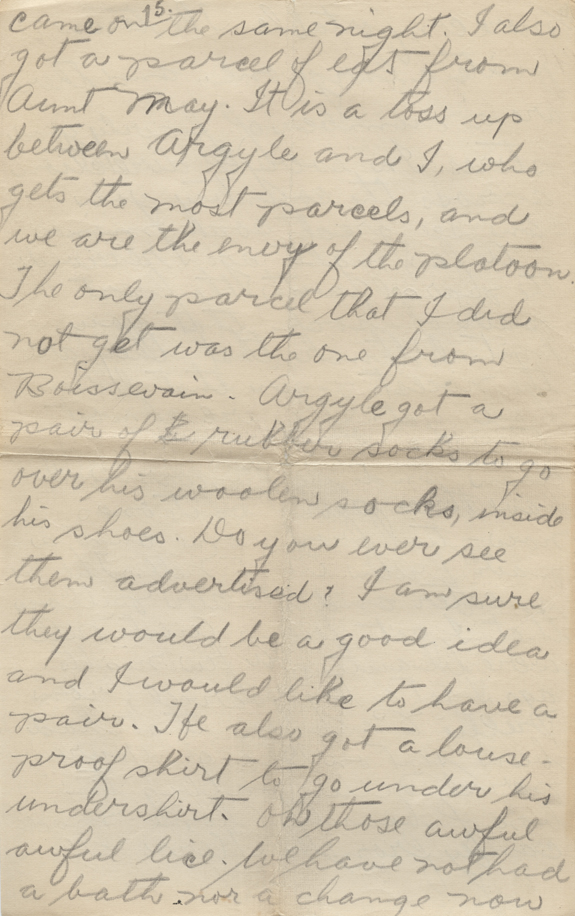 15.
came on the same night. I also
got a parcel of eats from
Aunt May. It is a toss up
between Argyle and I, who
gets the most parcels, and
we are the envy of the platoon.
The only parcel that I did
not get was the one from
Boissevain. Argyle got a
pair of rubber socks to go
over his woolen socks, inside
his shoes. Do you ever see
them advertised? I am sure
they would be a good idea
and I would like to have a
pair. He also got a louse-
proof shirt to go under his
undershirt. Oh those awful
awful lice. We have not had
a bath nor a change now